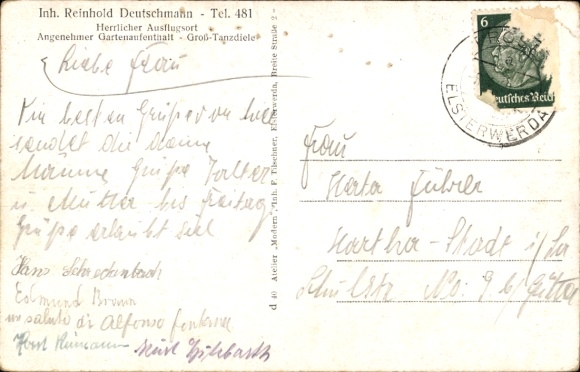 Inh. Reinhold Deutschmann - Tel. 481
Herrlicher Ausflugsort
Angenehmer Gartenaufenthalt - Groß-Tanzdiele
Liebe Frau
Die besten Grüße von hier
sendet dir deine
Männe Grüße Vater
u Mutter bis Freitag
Grüße erlaubt sich
Hans
Edmund Braun
un saluto di Alfonso
Horst
Kurt
d 40 Atelier „Modern", Inh. F. Tilschner, Elsterwerda, Breite Straße 2
6
Deutsches Reich
ELSTERWERDA
Frau
Herta Führer
Hartha-Stadt i/Sa
Schulstr No: 9 b/